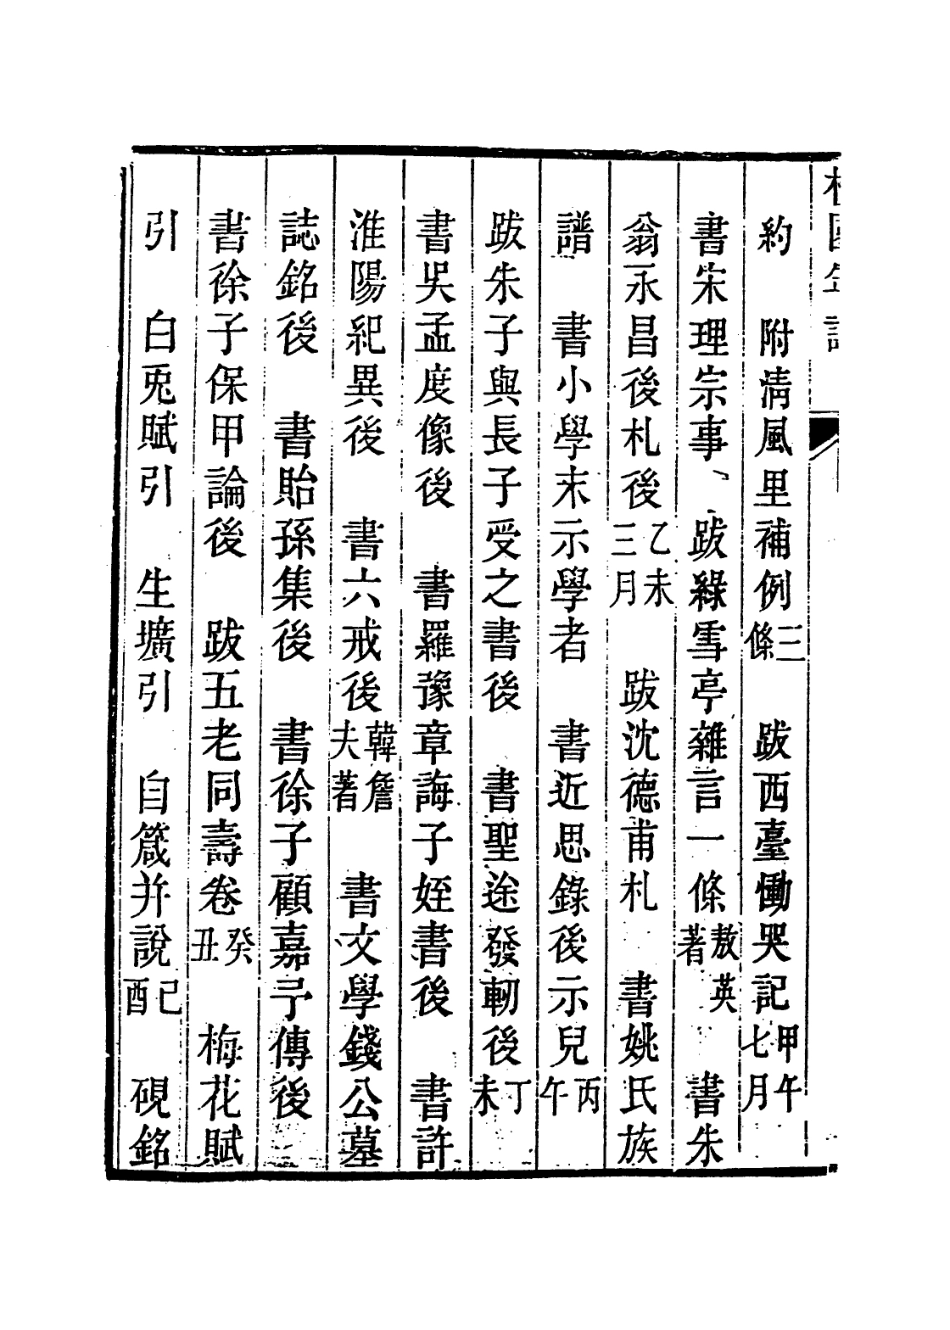 約　附清風里補例三條　跋西臺慟哭記甲午七月
書宋理宗事、跋綠雪亭雜言一條敖英著　書朱
翁永昌後札後乙未三月　跋沈德甫札　書姚氏族
譜　書小學末示學者　書近思錄後示兒丙午
跋朱子與長子受之書後　書聖途發軔後丁未
書吳孟度像後　書羅豫章誨子姪書後　書許
淮陽紀異後　書六戒後韓詹夫著　書文學錢公墓
誌銘後　書貽孫集後　書徐子顧嘉予傳後
書徐子保甲論後　跋五老同壽卷癸丑　梅花賦
引　白兎賦引　生壙引　自箴并說己酉　硯銘